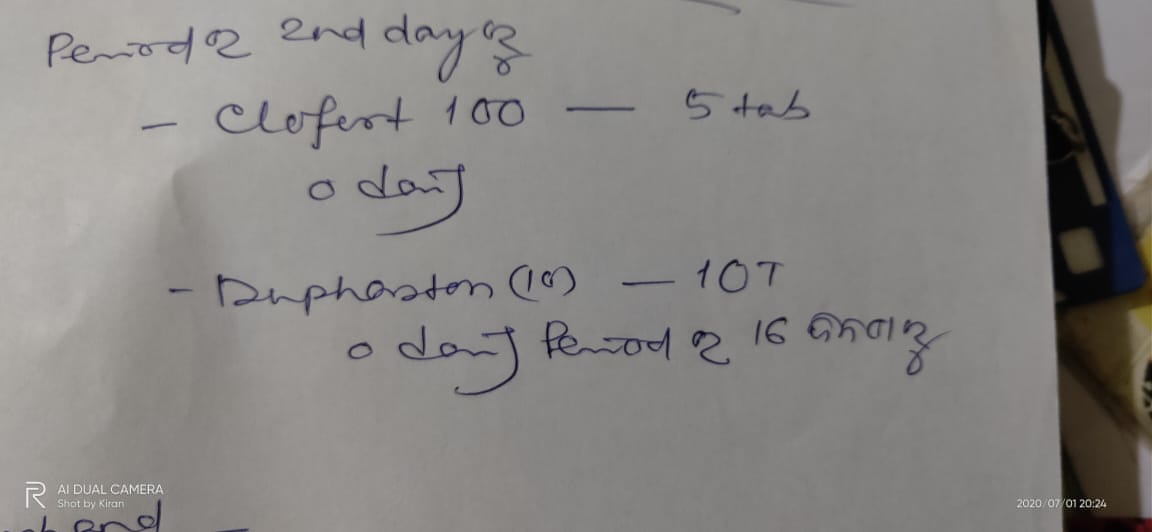 Period ର 2nd day ରୁ
- Clofert 100 — 5 tab
o daily
- Duphaston (10) — 10T
o daily Period ର 16 ଦିନରୁ
AI DUAL CAMERA
Shot by Kiran
2020/07/01 20:24